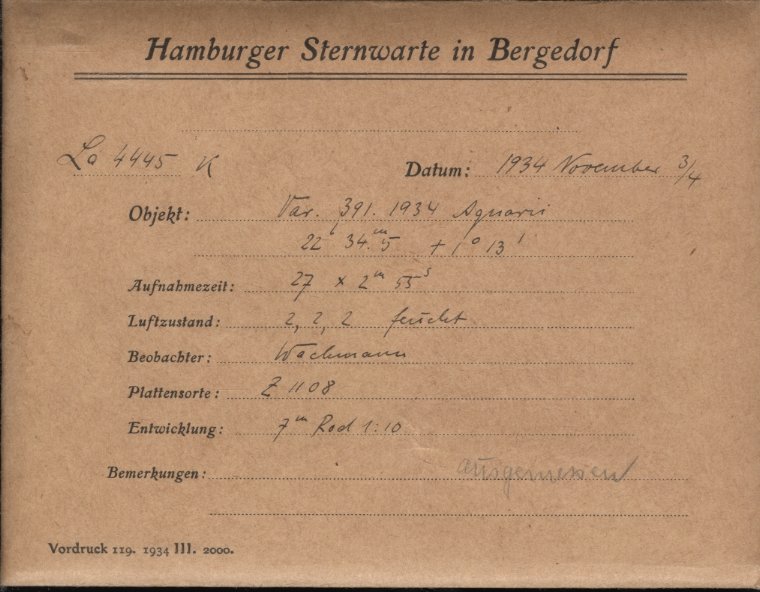 Hamburger Sternwarte in Bergedorf
La 4445 K Datum: 1934 November 3/4
Objekt: Var. 391. 1934 Aquarii
22ʰ 34.ᵐ5 + 1° 13'
Aufnahmezeit: 27 x 2ᵐ 55ˢ
Luftzustand: 2, 2, 2 feucht
Beobachter: Wachmann
Plattensorte: Z 1108
Entwicklung: 7ᵐ Rod 1:10
Bemerkungen: ausgemessen
Vordruck 119. 1934 III. 2000.